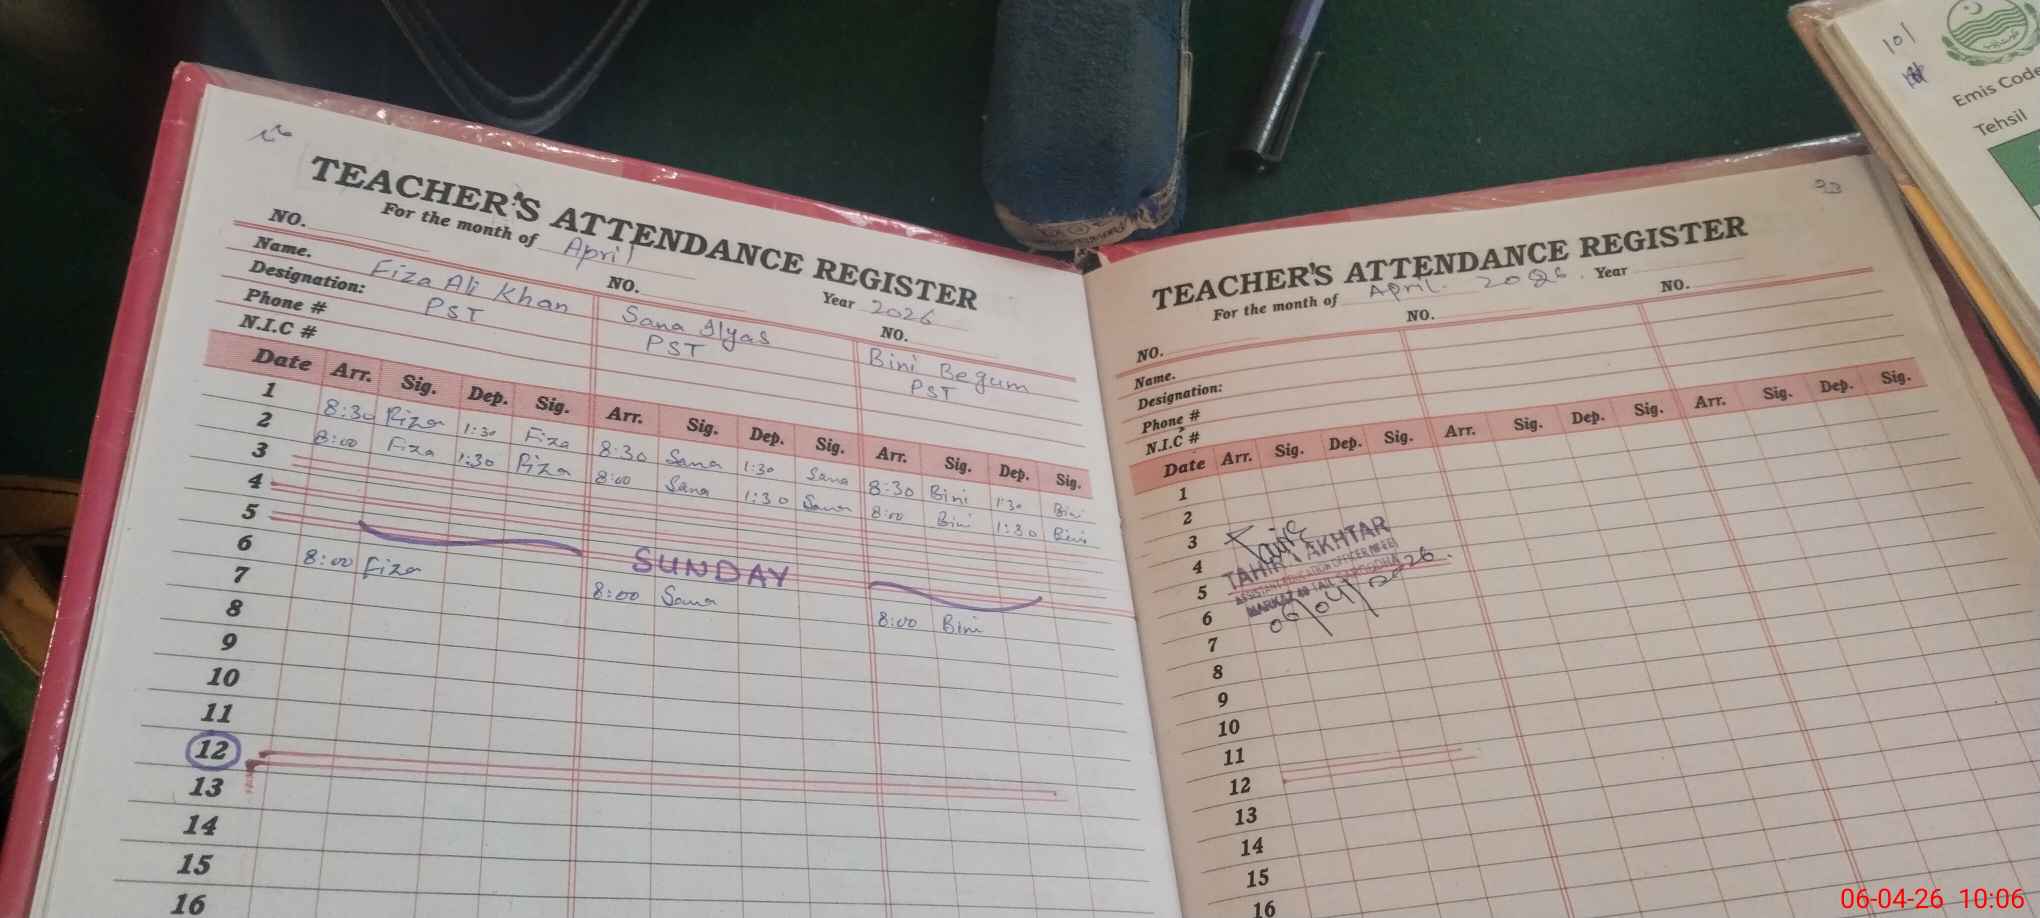 TEACHER'S ATTENDANCE REGISTER
For the month of April Year 2026
NO. NO. NO.
Name. Fiza Ali Khan Sana Ilyas Bini Begum
Designation: PST PST PST
Phone #
N.I.C #
Date Arr. Sig. Dep. Sig. Arr. Sig. Dep. Sig. Arr. Sig. Dep. Sig.
1 8:30 Fiza 1:30 Fiza 8:30 Sana 1:30 Sana 8:30 Bini 1:30 Bini
2 8:00 Fiza 1:30 Fiza 8:00 Sana 1:30 Sana 8:00 Bini 1:30 Bini
3
4
5 SUNDAY
6 8:00 Fiza 8:00 Sana 8:00 Bini
7
8
9
10
11
12
13
14
15
16
93
TEACHER'S ATTENDANCE REGISTER
For the month of April 2026 Year
NO. NO. NO.
Name.
Designation:
Phone #
N.I.C #
Date Arr. Sig. Dep. Sig. Arr. Sig. Dep. Sig. Arr. Sig. Dep. Sig.
1
2
3
4 TAHIRA AKHTAR
5
6 06/04/2026
7
8
9
10
11
12
13
14
15
16
101
Emis Code
Tehsil
06-04-26 10:06